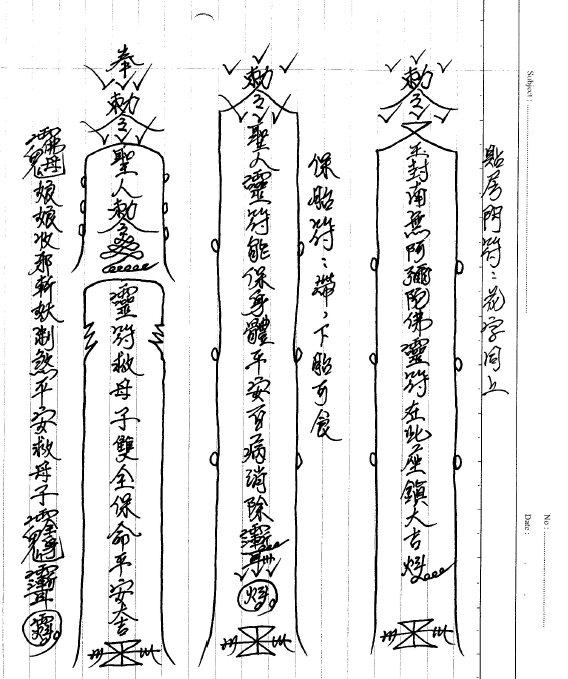 Subject :
No :
Date :
貼房門符：花字同上
勅令
玉封南無阿彌陀佛靈符在此座鎮大吉
保胎符：帶，下胎可食
勅令
聖人靈符能保身體平安百病消除
奉
勅令
聖人勅令
靈符救母子雙全保命平安大吉
娘娘收邪斬妖制煞平安救母子